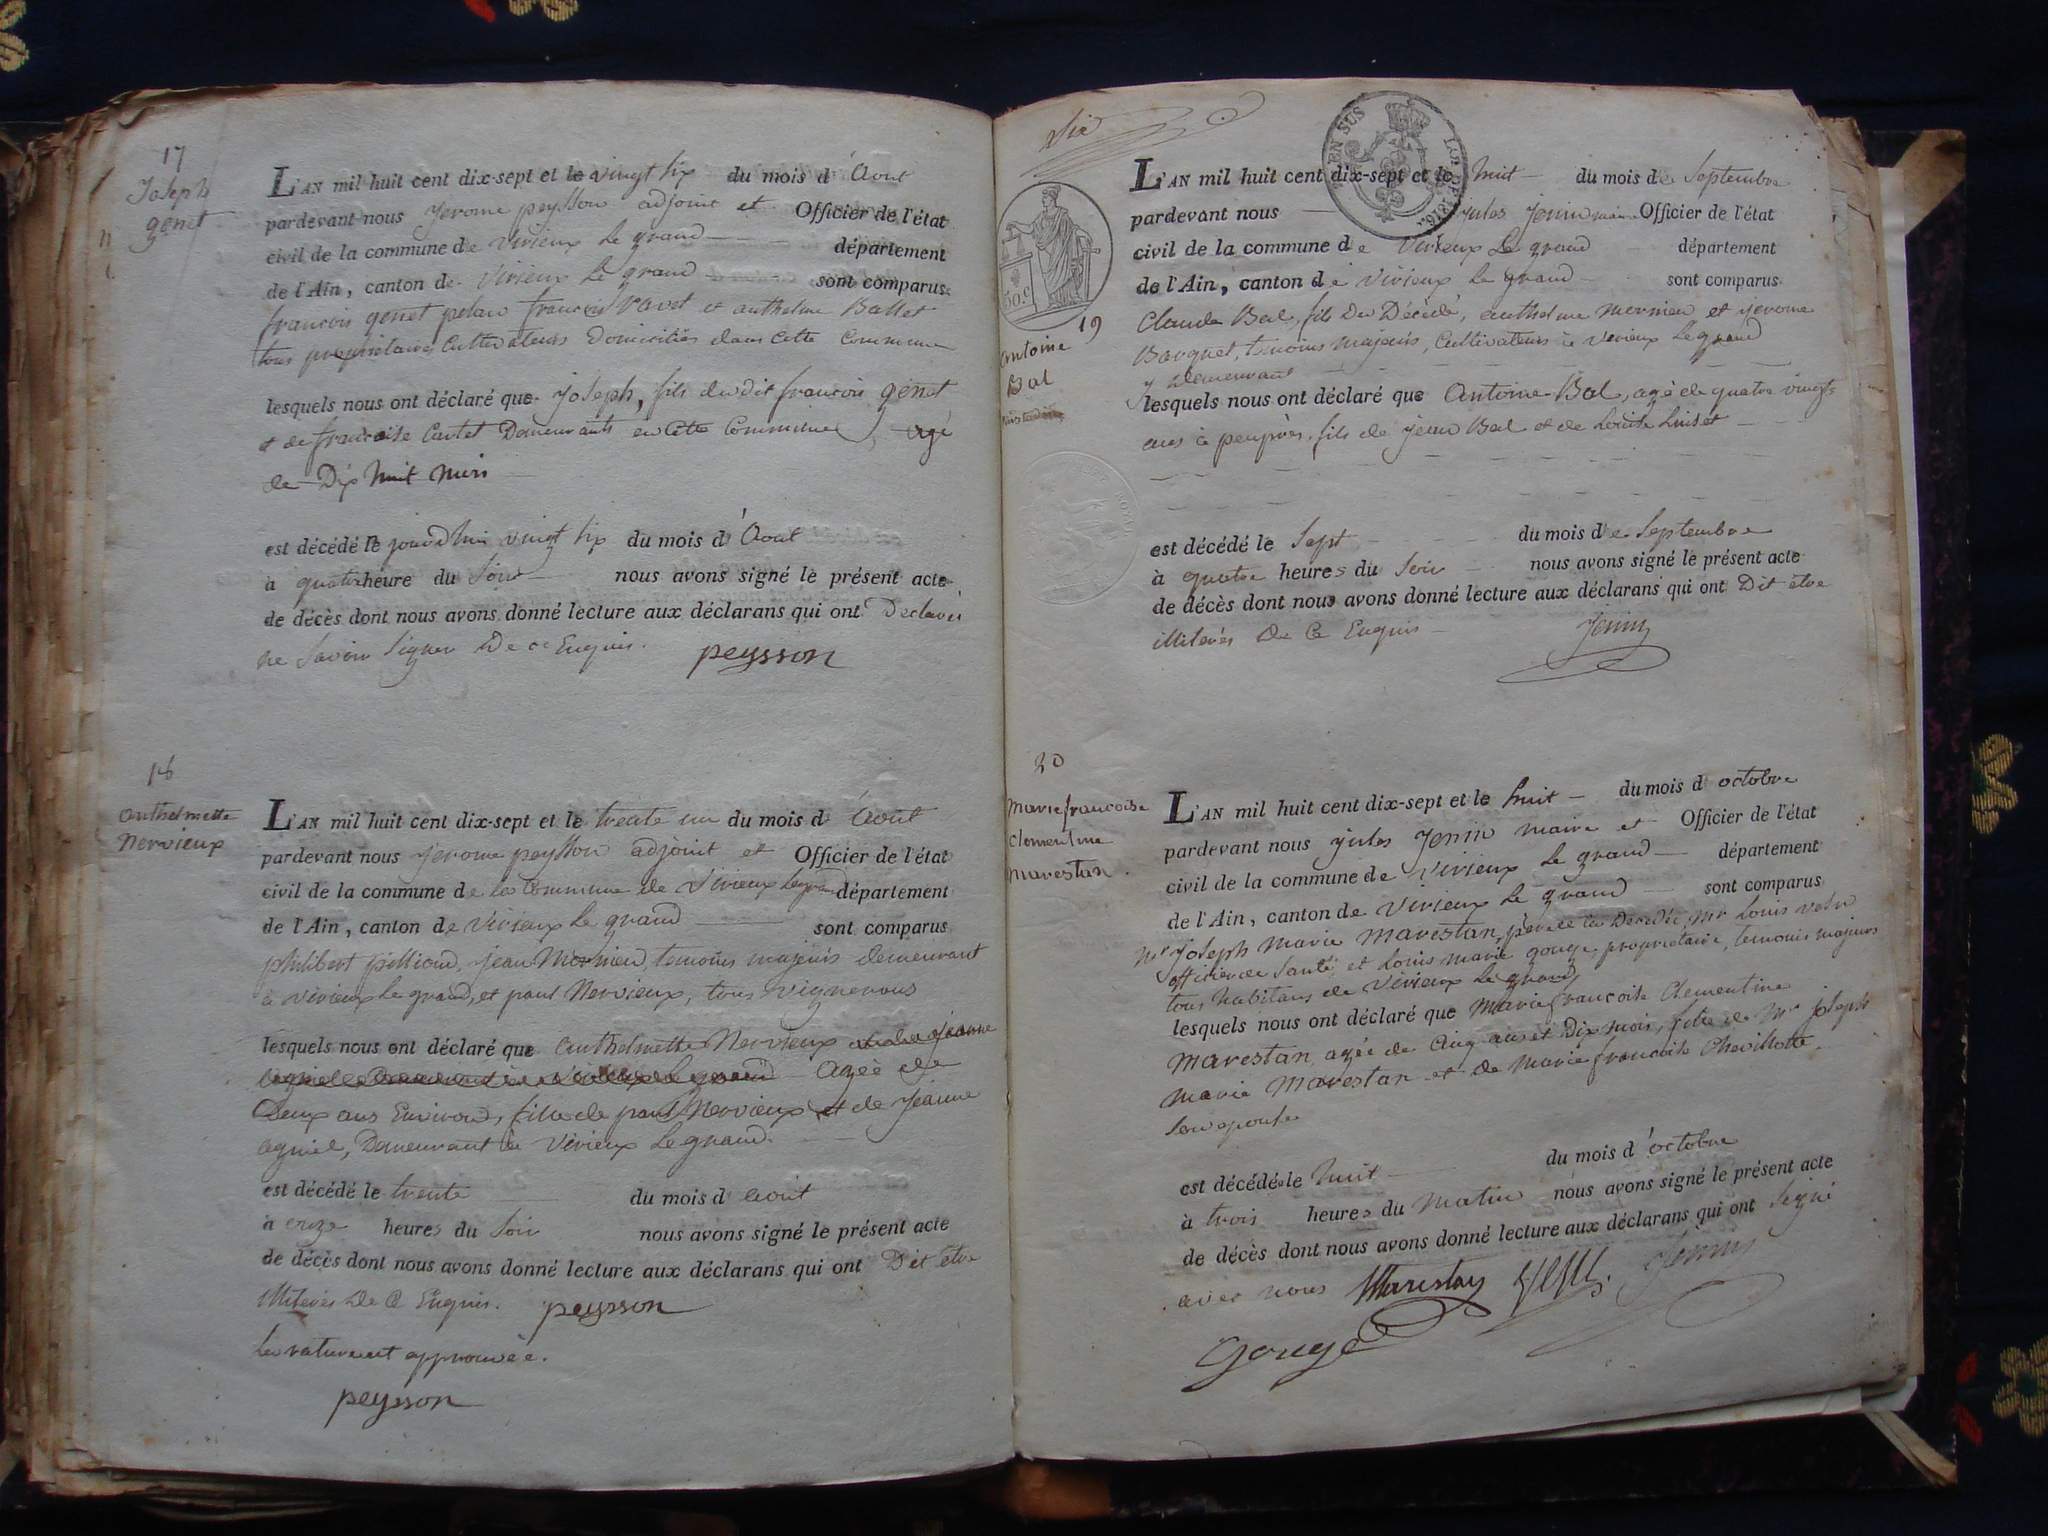 17
Joseph
genet
L'AN mil huit cent dix-sept et le vingt six du mois d'Aout
pardevant nous Jerome peysson adjoint et Officier de l'état
civil de la commune de Virieux Le grand département
de l'Ain, canton de Virieux Le grand sont comparus
francois genet françois Ravet et anthelme Ballet
tous proprietaires Cultivateurs Domiciliés dans cette Commune
lesquels nous ont déclaré que Joseph, fils dudit francois genet
et de francoise Cartet Demeurants en Cette Commune, agé
de Dix huit mois
est décédé le jourd'hui vingt six du mois d'Aout
à quatre heure du Soir nous avons signé le présent acte
de décès dont nous avons donné lecture aux déclarans qui ont Déclarés
ne Savoir Signer De ce Enquis. peysson
18
anthelmette
Nervieux
L'AN mil huit cent dix-sept et le trente un du mois d'Aout
pardevant nous Jerome peysson adjoint et Officier de l'état
civil de la commune de la Commune de Virieux Legrand département
de l'Ain, canton de Virieux Le grand sont comparus
philibert pilliond, jean Mornieu, temoins majeurs demeurant
à Virieux Le grand, et paul Nervieux, tous Vignerons
lesquels nous ont déclaré que anthelmette Nervieux
Agée de
Deux ans Environ, fille de paul Nervieux et de Jeanne
agniel, Demeurant à Virieux Le grand.
est décédé le trente du mois d'aout
à onze heures du Soir nous avons signé le présent acte
de décès dont nous avons donné lecture aux déclarans qui ont Dit être
illiterés De Ce Enquis. peysson
La rature est approuvée.
peysson
Six
EN SUS
LOI 1816.
50.c
19
antoine
Bal
L'AN mil huit cent dix-sept et le huit du mois de Septembre
pardevant nous jules Jenin maire Officier de l'état
civil de la commune de Virieux Le grand département
de l'Ain, canton de Virieux Le grand sont comparus
Claude Bal, fils Du Décédé, anthelme mornieu et jerome
Borgnet, temoins majeurs, Cultivateurs à Virieux Legrand
y Demeurant
lesquels nous ont déclaré que Antoine Bal, agé de quatre vingt
ans à peuprès, fils de jean Bal et de Louise
est décédé le Sept du mois de Septembre
à quatre heures du Soir nous avons signé le présent acte
de décès dont nous avons donné lecture aux déclarans qui ont Dit être
illiterés De Ce Enquis Jenin
20
marie francoise
Clementine
marestan.
L'AN mil huit cent dix-sept et le huit du mois d'octobre
pardevant nous jules Jenin maire et Officier de l'état
civil de la commune de Virieux Le grand département
de l'Ain, canton de Virieux Le grand sont comparus
Mr Joseph marie marestan, père de la Decédée, Mr Louis
officier de Santé, et Louis marie gouge, proprietaire, temoins majeurs
tous habitans de Virieux Le grand,
lesquels nous ont déclaré que marie francoise Clementine
marestan agée de Cinq ans et Dix mois, fille de Mr joseph
marie marestan et de marie francoise Chevillotte
Son epouse
est décédée le huit du mois d'octobre
à trois heures du matin nous avons signé le présent acte
de décès dont nous avons donné lecture aux déclarans qui ont Signé
avec nous Marestan Jenin
Gouge